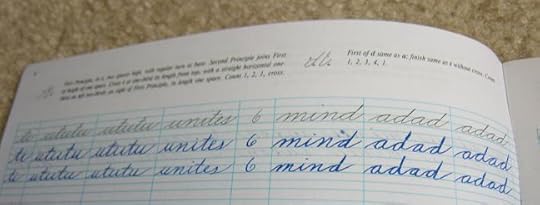 First Principle, as i, two spaces high, with regular turn at base. Second Principle joins First
at height of one space. Cross t at one-third its length from top, with a straight horizontal one-
third on left two-thirds on right of First Principle, in length one space. Count 1, 2, 1, cross.
First of d same as a; finish same as t without cross. Count
1, 2, 3, 4, 1.
tc ututu ututu unites 6 mind adad adad
tc ututu ututu unites 6 mind adad adad
tc ututu ututu unites 6 mind adad adad